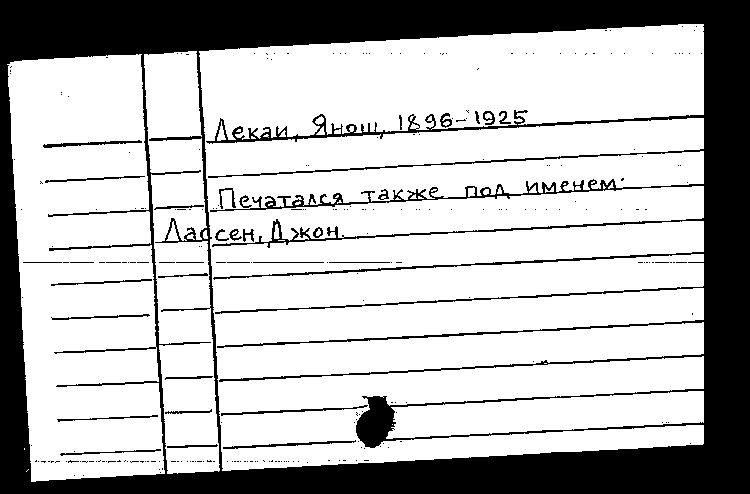 Лекаи, Янош, 1896-1925
Печатался также под именем:
Лассен, Джон.